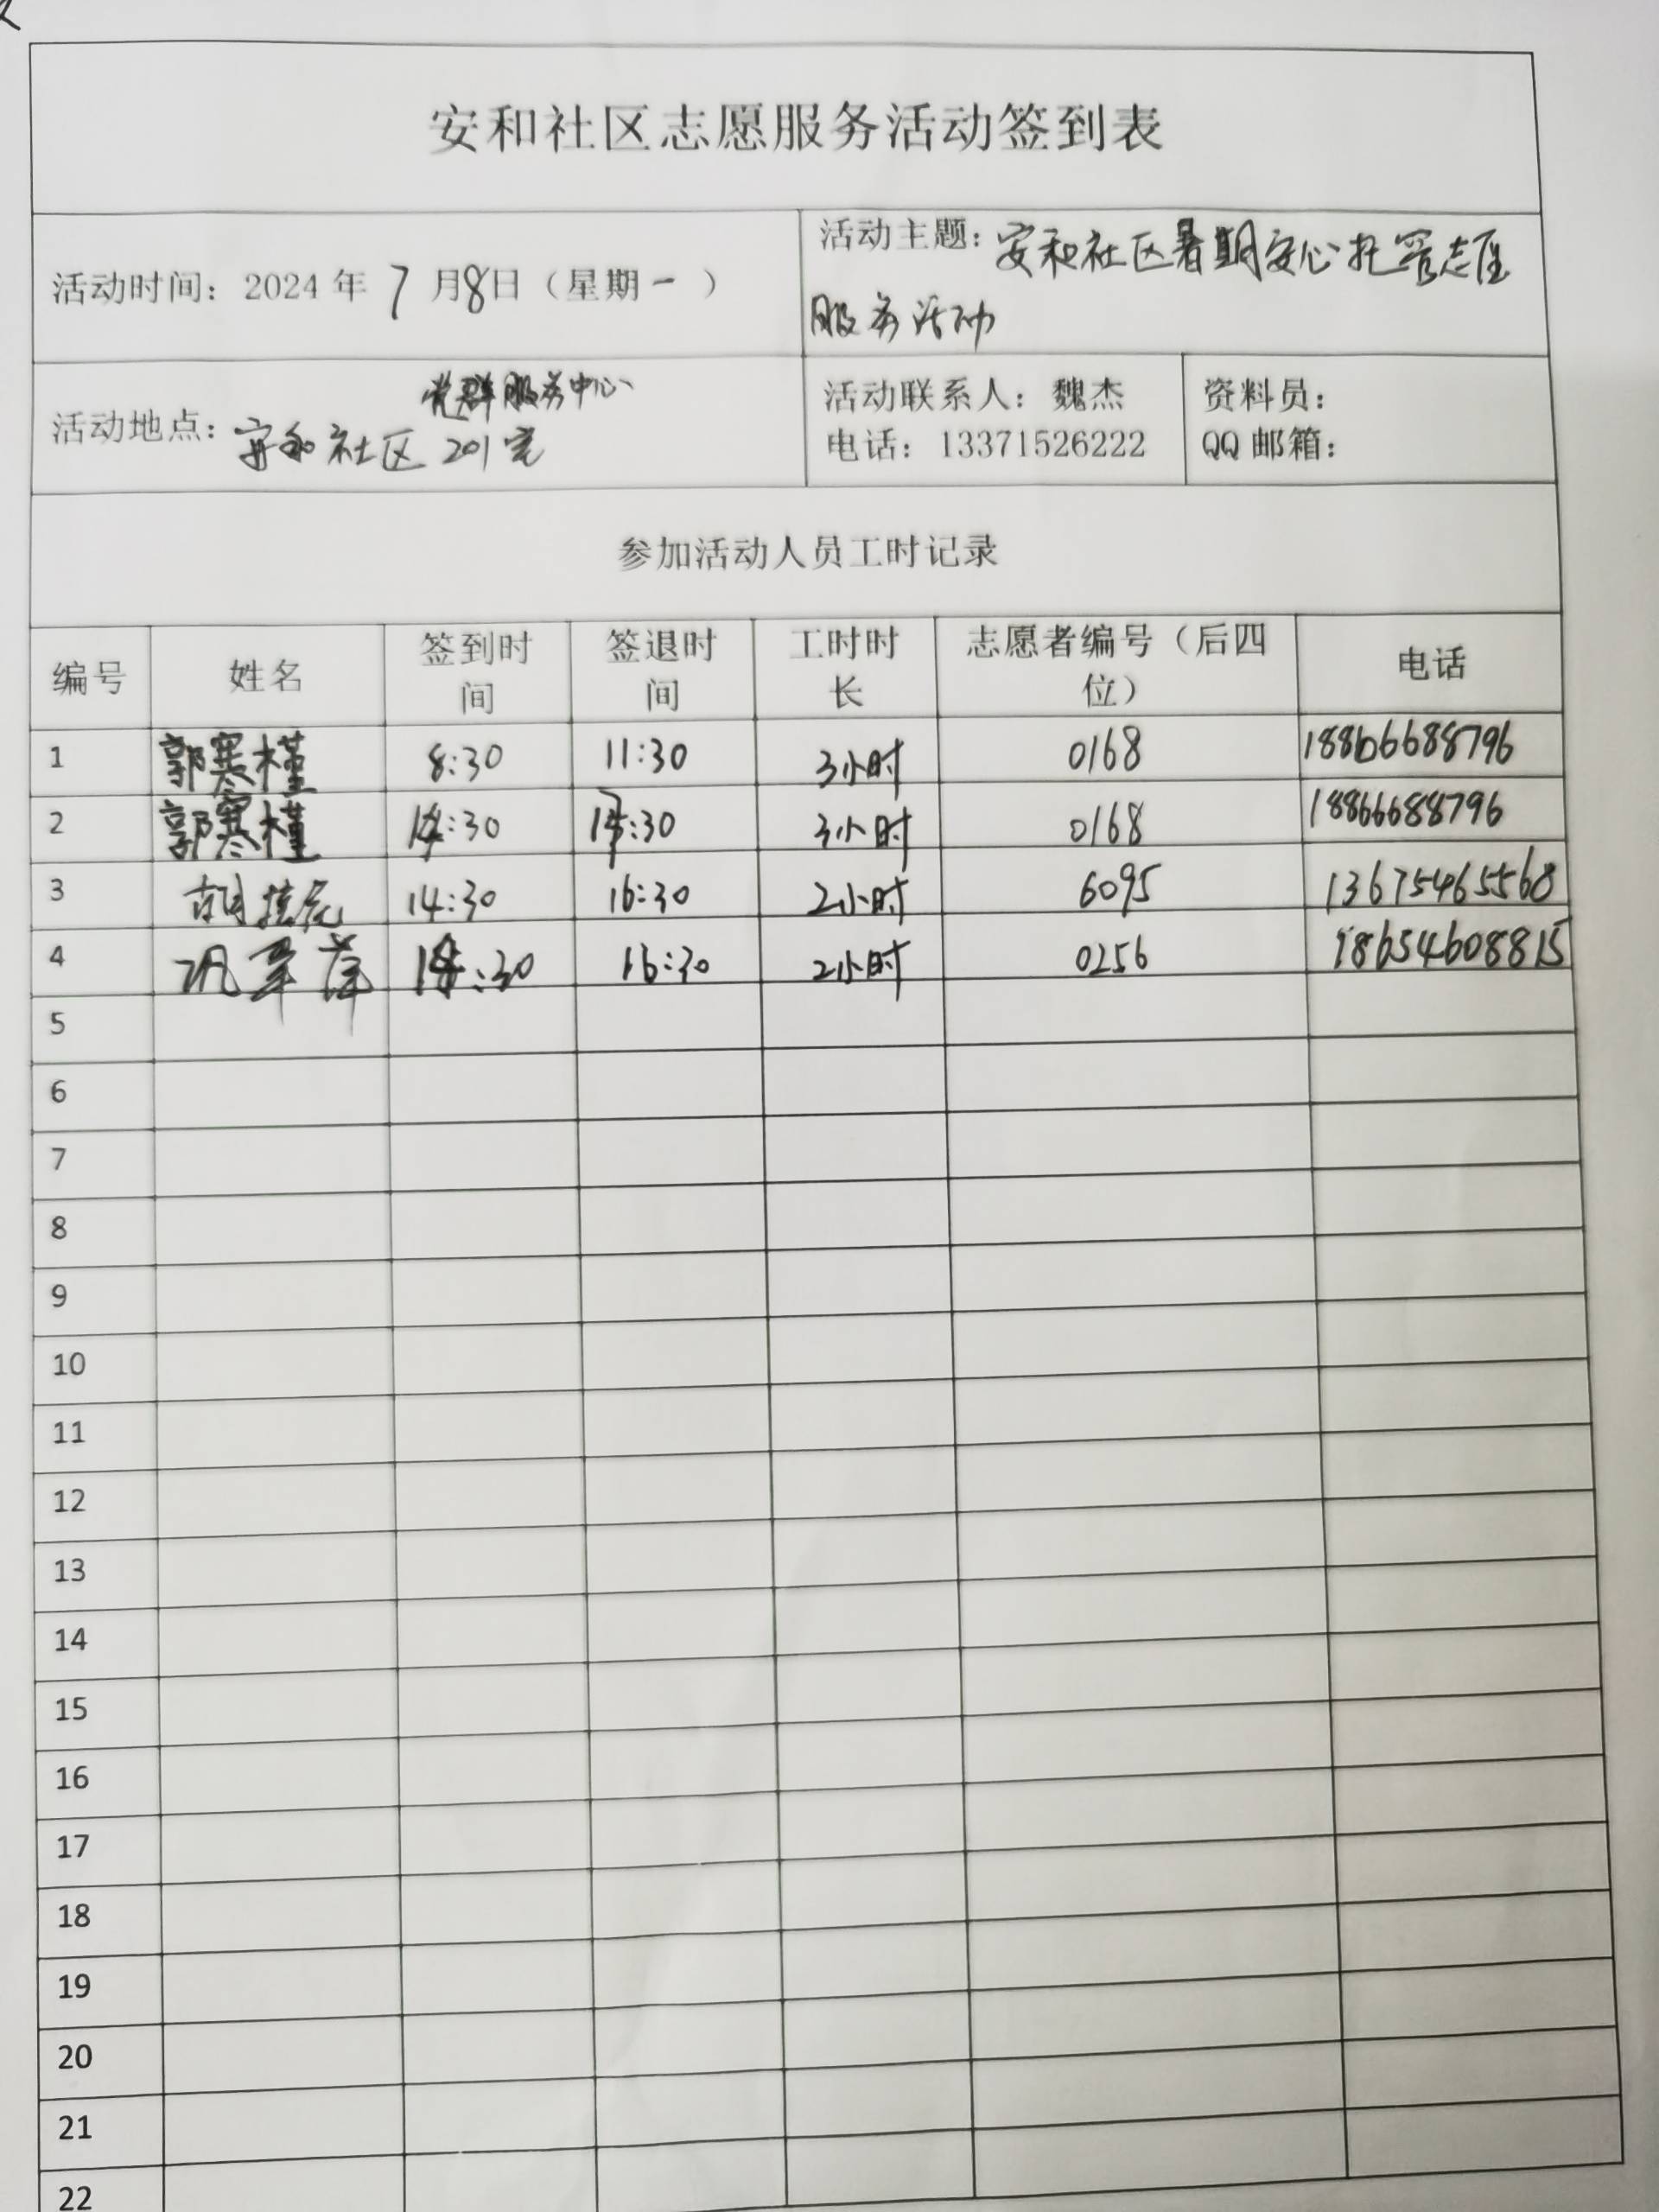 安和社区志愿服务活动签到表
活动时间：2024 年 7 月8日（星期一）
活动主题：安和社区暑期安心托管志愿
服务活动
党群服务中心
活动地点：安和社区 201室
活动联系人：魏杰
电话：13371526222
资料员：
QQ 邮箱：
参加活动人员工时记录
编号 姓名 签到时间 签退时间 工时时长 志愿者编号（后四位） 电话
1 郭寒槿 8:30 11:30 3小时 0168 18866688796
2 郭寒槿 14:30 17:30 3小时 0168 18866688796
3 胡 14:30 16:30 2小时 6095 13675465568
4 巩 14:30 16:30 2小时 0256 18654608815
5
6
7
8
9
10
11
12
13
14
15
16
17
18
19
20
21
22